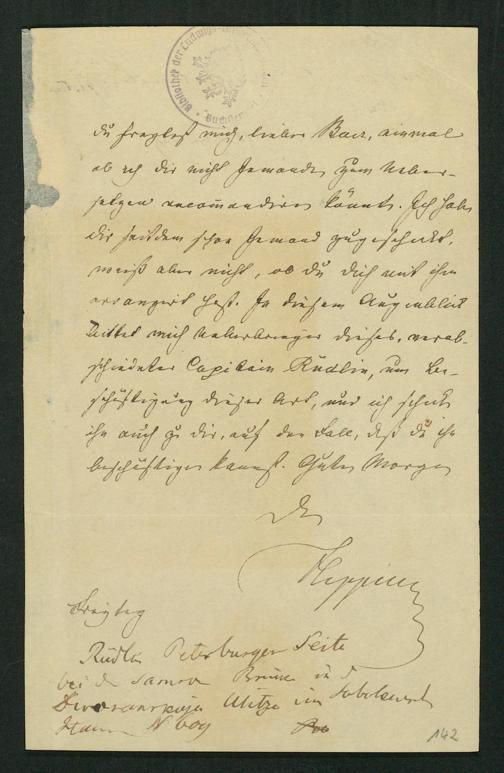 Bibliothek der
Du fragtest mich, lieber Baer, einmal
ob ich dir nicht Jemanden zum Ueber-
setzen recommandiren könnte. Ich habe
dir seitdem schon Jemand zugeschickt,
weiß aber nicht, ob du dich mit ihm
arrangirt hast. In diesem Augenblick
bittet mich Ueberbringer dieses, verab-
schiedeter Capitain Rüdlin, um Be-
schäftigung dieser Art, und ich schicke
ihn auch zu dir, auf den Fall, daß du ihn
beschäftigen kannst. Guten Morgen
Dr
Köppen
Freytag
Petersburger Seite
bei d
im
N
142